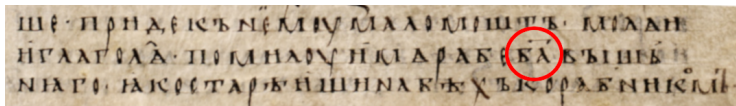 ше· придекън҄емоумаломоштъ· молѧи
и҅глагол҄ѧ· помилоуи҅мѧрабеб҃авъішьн
нꙗго· ꙗкостарѣишинабѣхъкорабникомъ